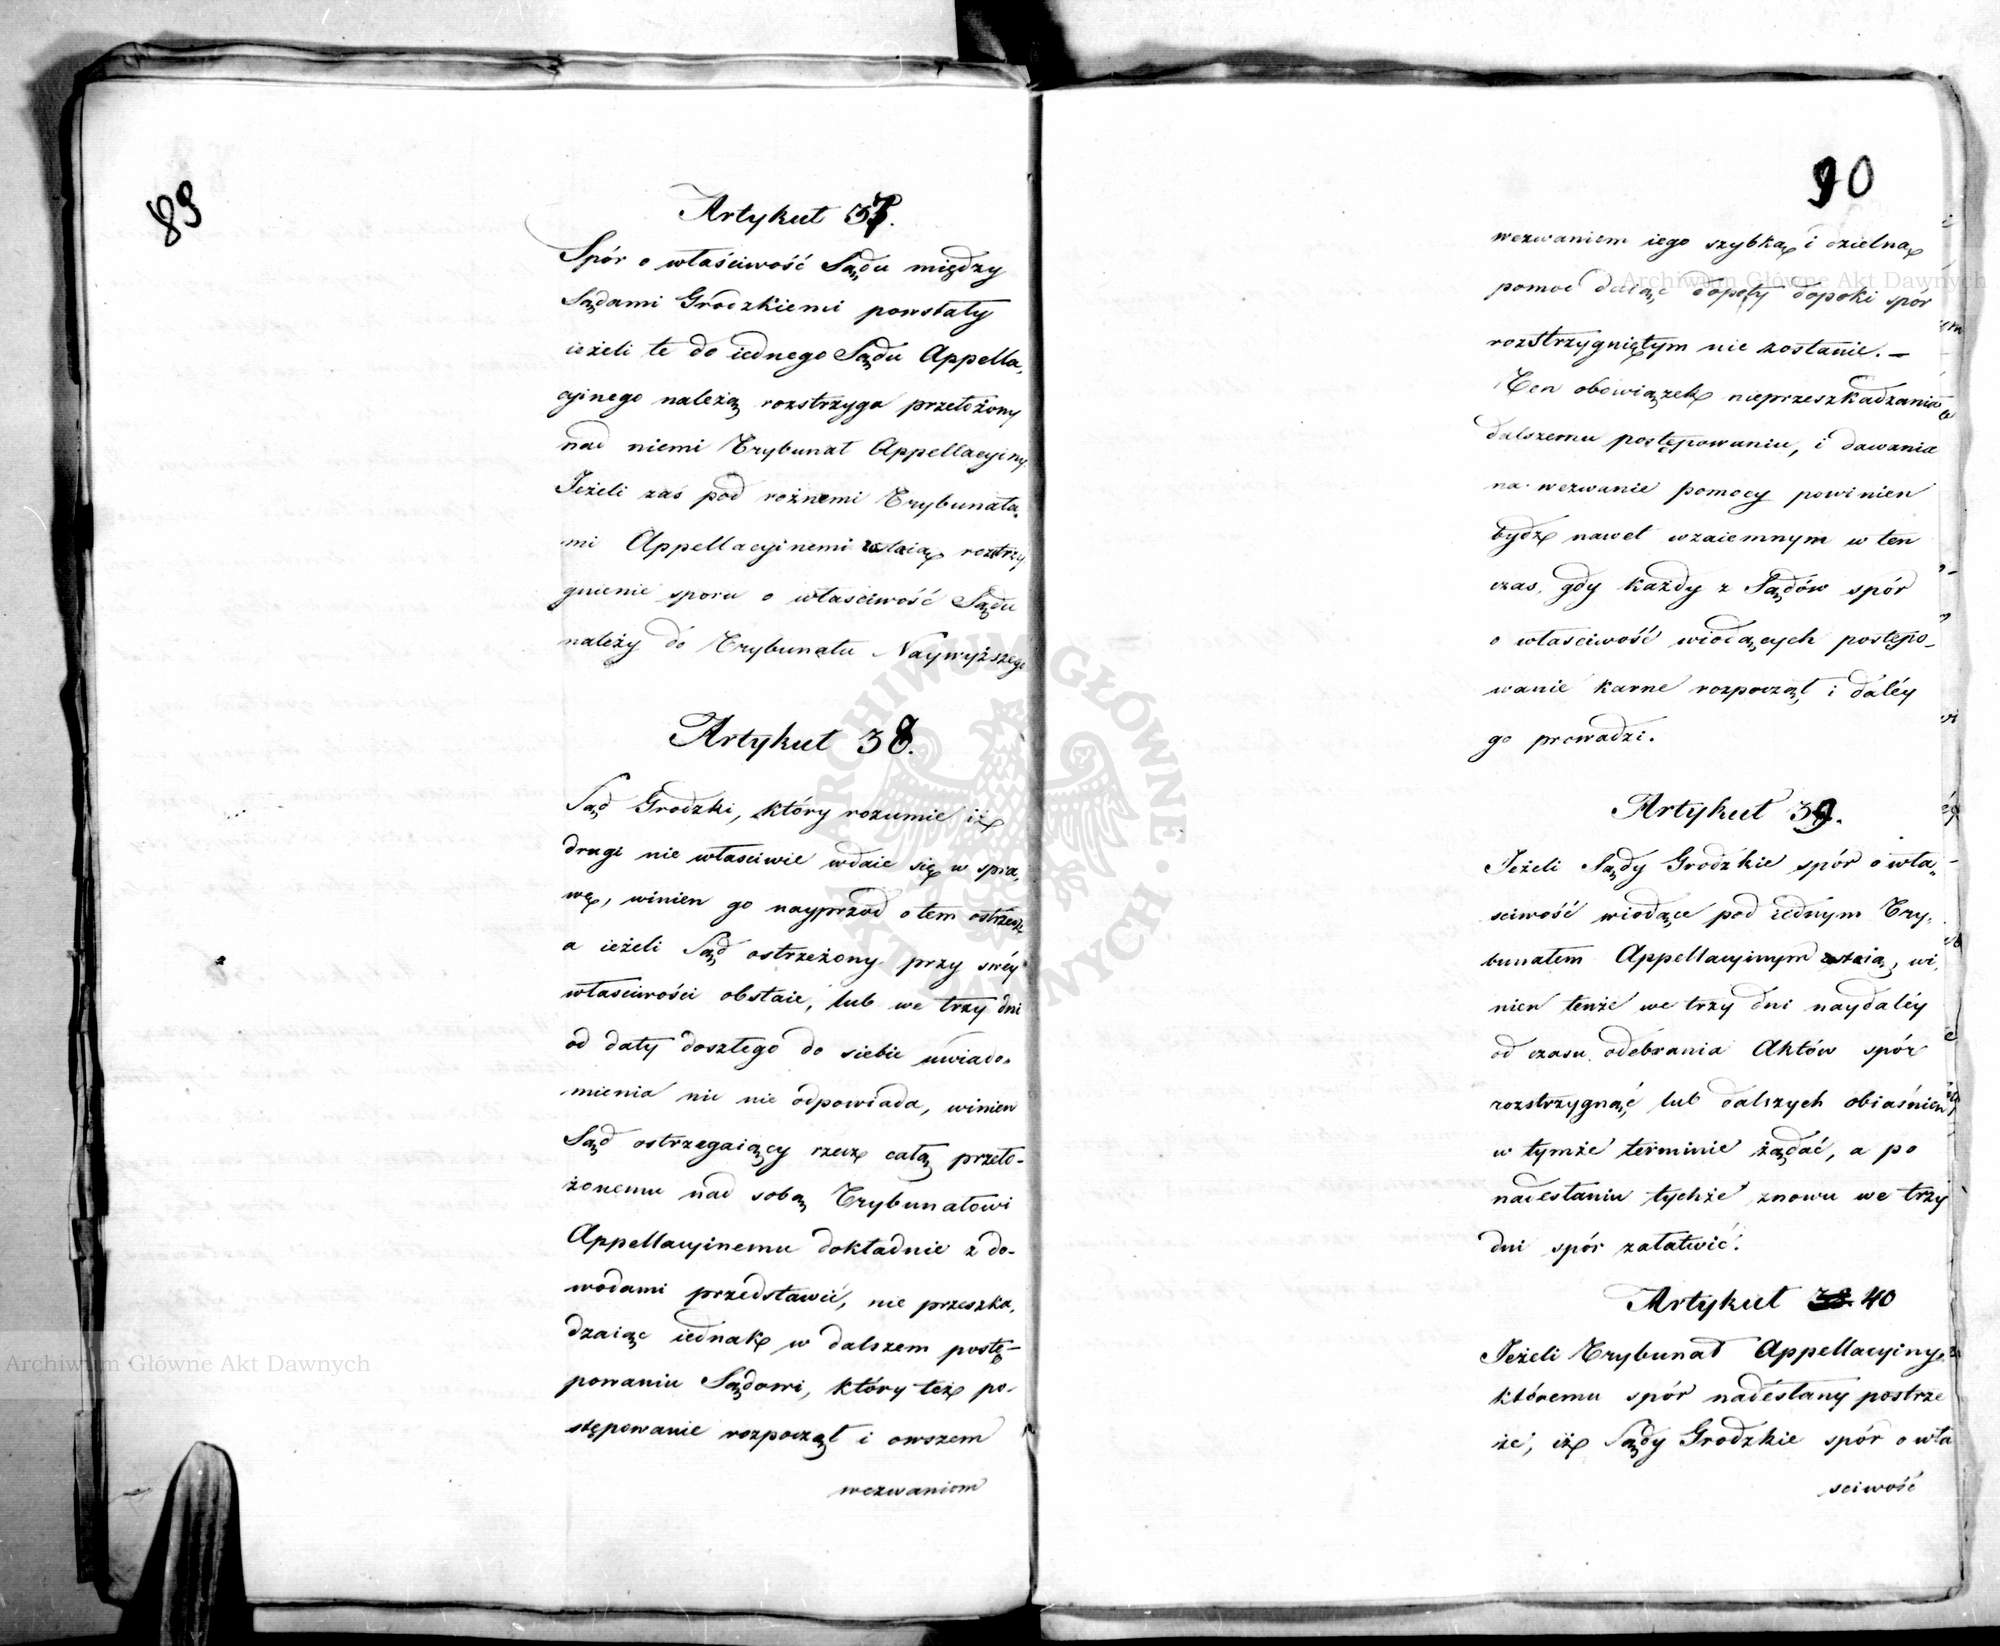 89
Artykuł 37.
Spór o właściwość Sądu między
Sądami Grodzkiemi powstały
ieżeli te do iednego Sądu Appella,
cyinego należą rozstrzyga przełożony
nad niemi Trybunał Appellacyiny.
Jeżeli zaś pod rożnemi Trybunała,
mi Appellacyinemi zostaią rozstrzy
gnienie sporu o właściwość Sądu
należy do Trybunału Naywyższego
Artykuł 38.
Sąd Grodzki, który rozumie iż
drugi nie właściwie wdaie się w spra,
wę, winien go nayprzód o tem ostrzedz
a ieżeli Sąd ostrzeżony przy swéy
właściwości obstaie, lub we trzy dni
od daty doszłego do siebie uwiado,
mienia nic nie odpowiada, winien
Sąd ostrzegaiący rzecz całą przeło-
żonemu nad sobą Trybunałowi
Appellacyinemu dokładnie z do-
wodami przedstawić, nie przeszka,
dzaiąc iednak w dalszem postę-
powaniu Sądowi, który też po-
stępowanie rozpoczął i owszem
wezwaniom
90
wezwaniom iego szybką i dzielną
pomoc daiąc dopóty dopóki spór
rozstrzygniętym nie zostanie. —
Ten obowiązek nieprzeszkadzania
dalszemu postępowaniu, i dawania
na wezwanie pomocy powinien
bydź nawet wzaiemnym w ten
czas, gdy każdy z Sądów spór
o właściwość wiodących postępo-
wanie karne rozpoczął i daléy
go prowadzi.
Artykuł 39.
Jeżeli Sądy Grodzkie spór o wła,
sciwość wiodące pod iednym Try,
bunałem Appellacyinym zostaią, wi,
nien tenże we trzy dni naydaléy
od czasu odebrania Aktów spór
rozstrzygnąć lub dalszych obiaśnień
w tymże terminie żądać, a po
nadesłaniu tychże znowu we trzy
dni spór załatwić.
Artykuł 40
Jeżeli Trybunał Appellacyiny,
któremu spór nadesłany postrze
że, iż Sądy Grodzkie spór o wła
sciwość
Archiwum Główne Akt Dawnych
Archiwum Główne Akt Dawnych
ARCHIWUM GŁÓWNE AKT DAWNYCH